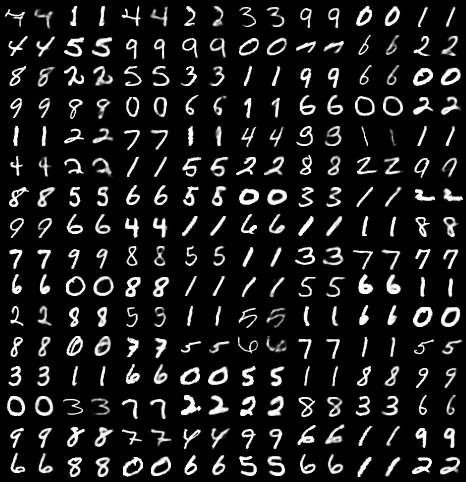 1 1 4 4 2 2 3 3 9 9 0 0 1 1
4 4 5 5 9 9 9 9 0 0 7 7 6 6 2 2
8 8 2 2 5 5 3 3 1 1 9 9 6 6 0 0
9 9 8 9 0 0 6 6 1 1 6 6 0 0 2 2
1 1 2 2 7 7 1 1 4 4 9 9 1 1 1 1
4 4 2 2 1 1 5 5 2 2 8 8 2 2 9 9
8 8 5 5 6 6 5 5 0 0 3 3 1 1 2 2
9 9 6 6 4 4 1 1 6 6 1 1 1 1 8 8
7 7 9 9 8 8 5 5 1 1 3 3 7 7 7 7
6 6 0 0 8 8 1 1 1 1 5 5 6 6 1 1
2 2 8 8 5 3 1 1 5 5 1 1 6 6 0 0
8 8 0 0 7 7 5 5 6 6 7 7 1 1 5 5
3 3 1 1 6 6 0 0 5 5 1 1 8 8 9 9
0 0 3 3 7 7 2 2 2 2 8 8 3 3 6 6
9 9 8 8 7 7 4 4 9 9 6 6 1 1 9 9
6 6 8 8 0 0 6 6 5 5 6 6 1 1 2 2